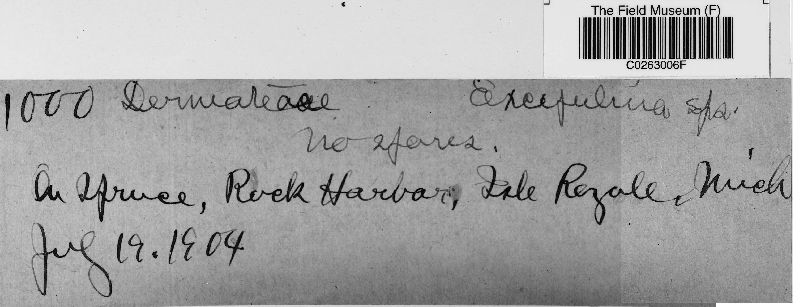 The Field Museum (F)
C0263006F
1000 Dermateaceae Excipulina sps.
No spores.
On Spruce, Rock Harbor, Isle Royale, Mich
July 19. 1904